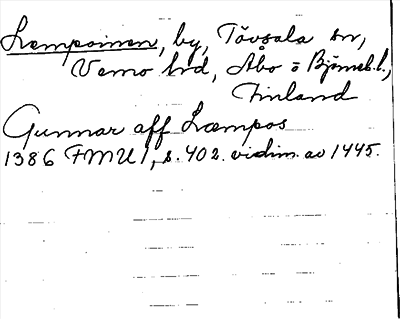 Lempoinen, by, Tövsala sn,
Vemo hrd, Åbo o Björneb. l.,
Finland
Gunnar aff Læmpos
1386 FMU 1, s. 402. vidim. av 1445.